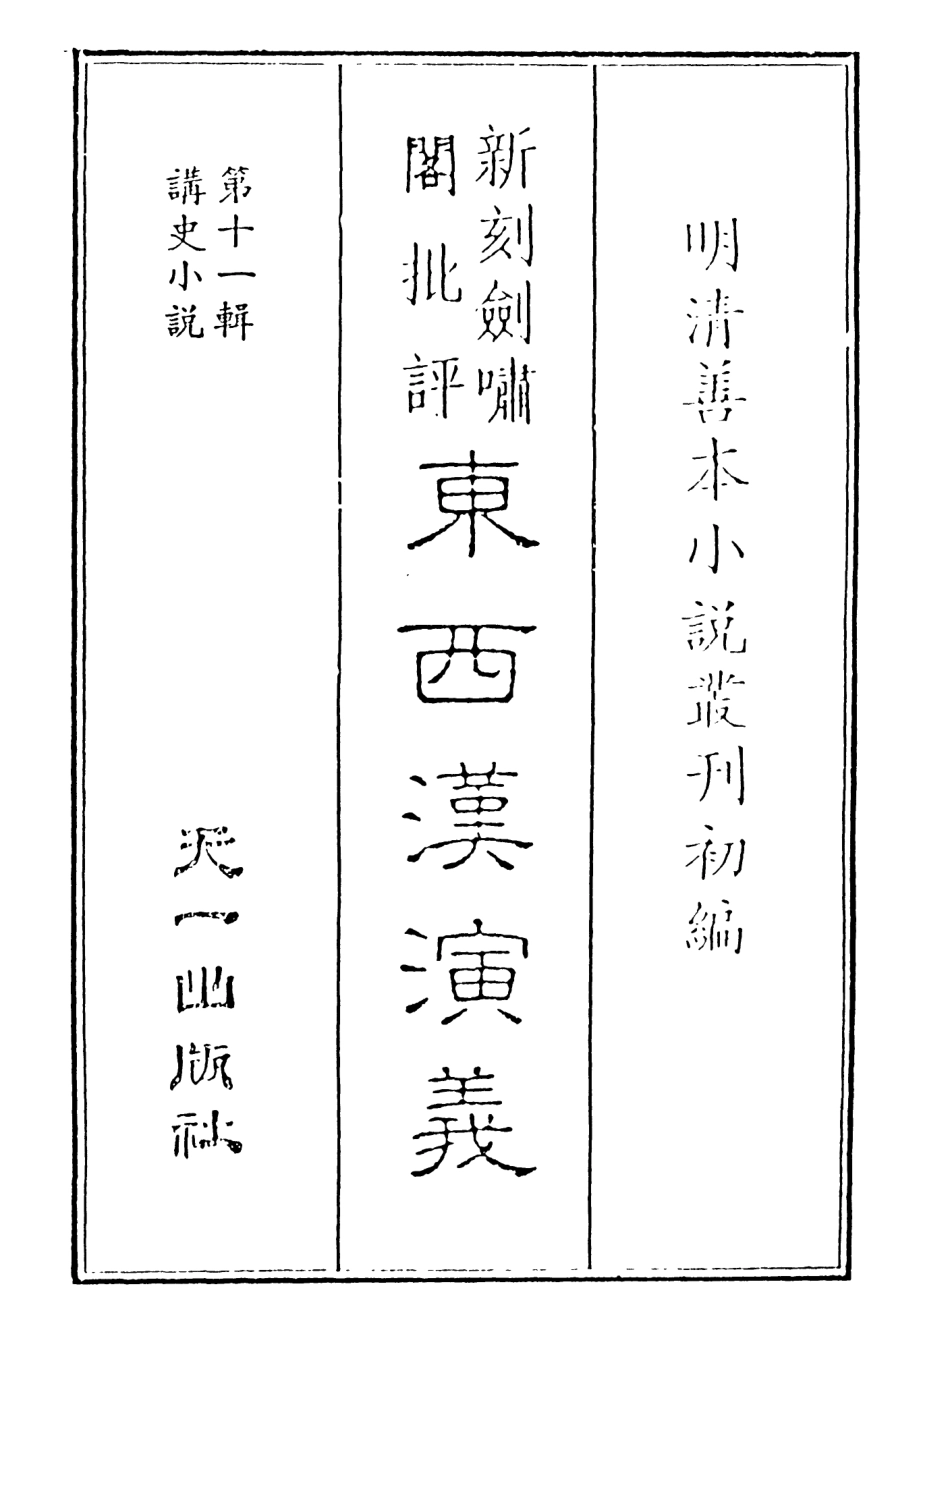 明清善本小說叢刊初編
新刻劍嘯
閣批評
東西漢演義
第十一輯
講史小說
天一出版社